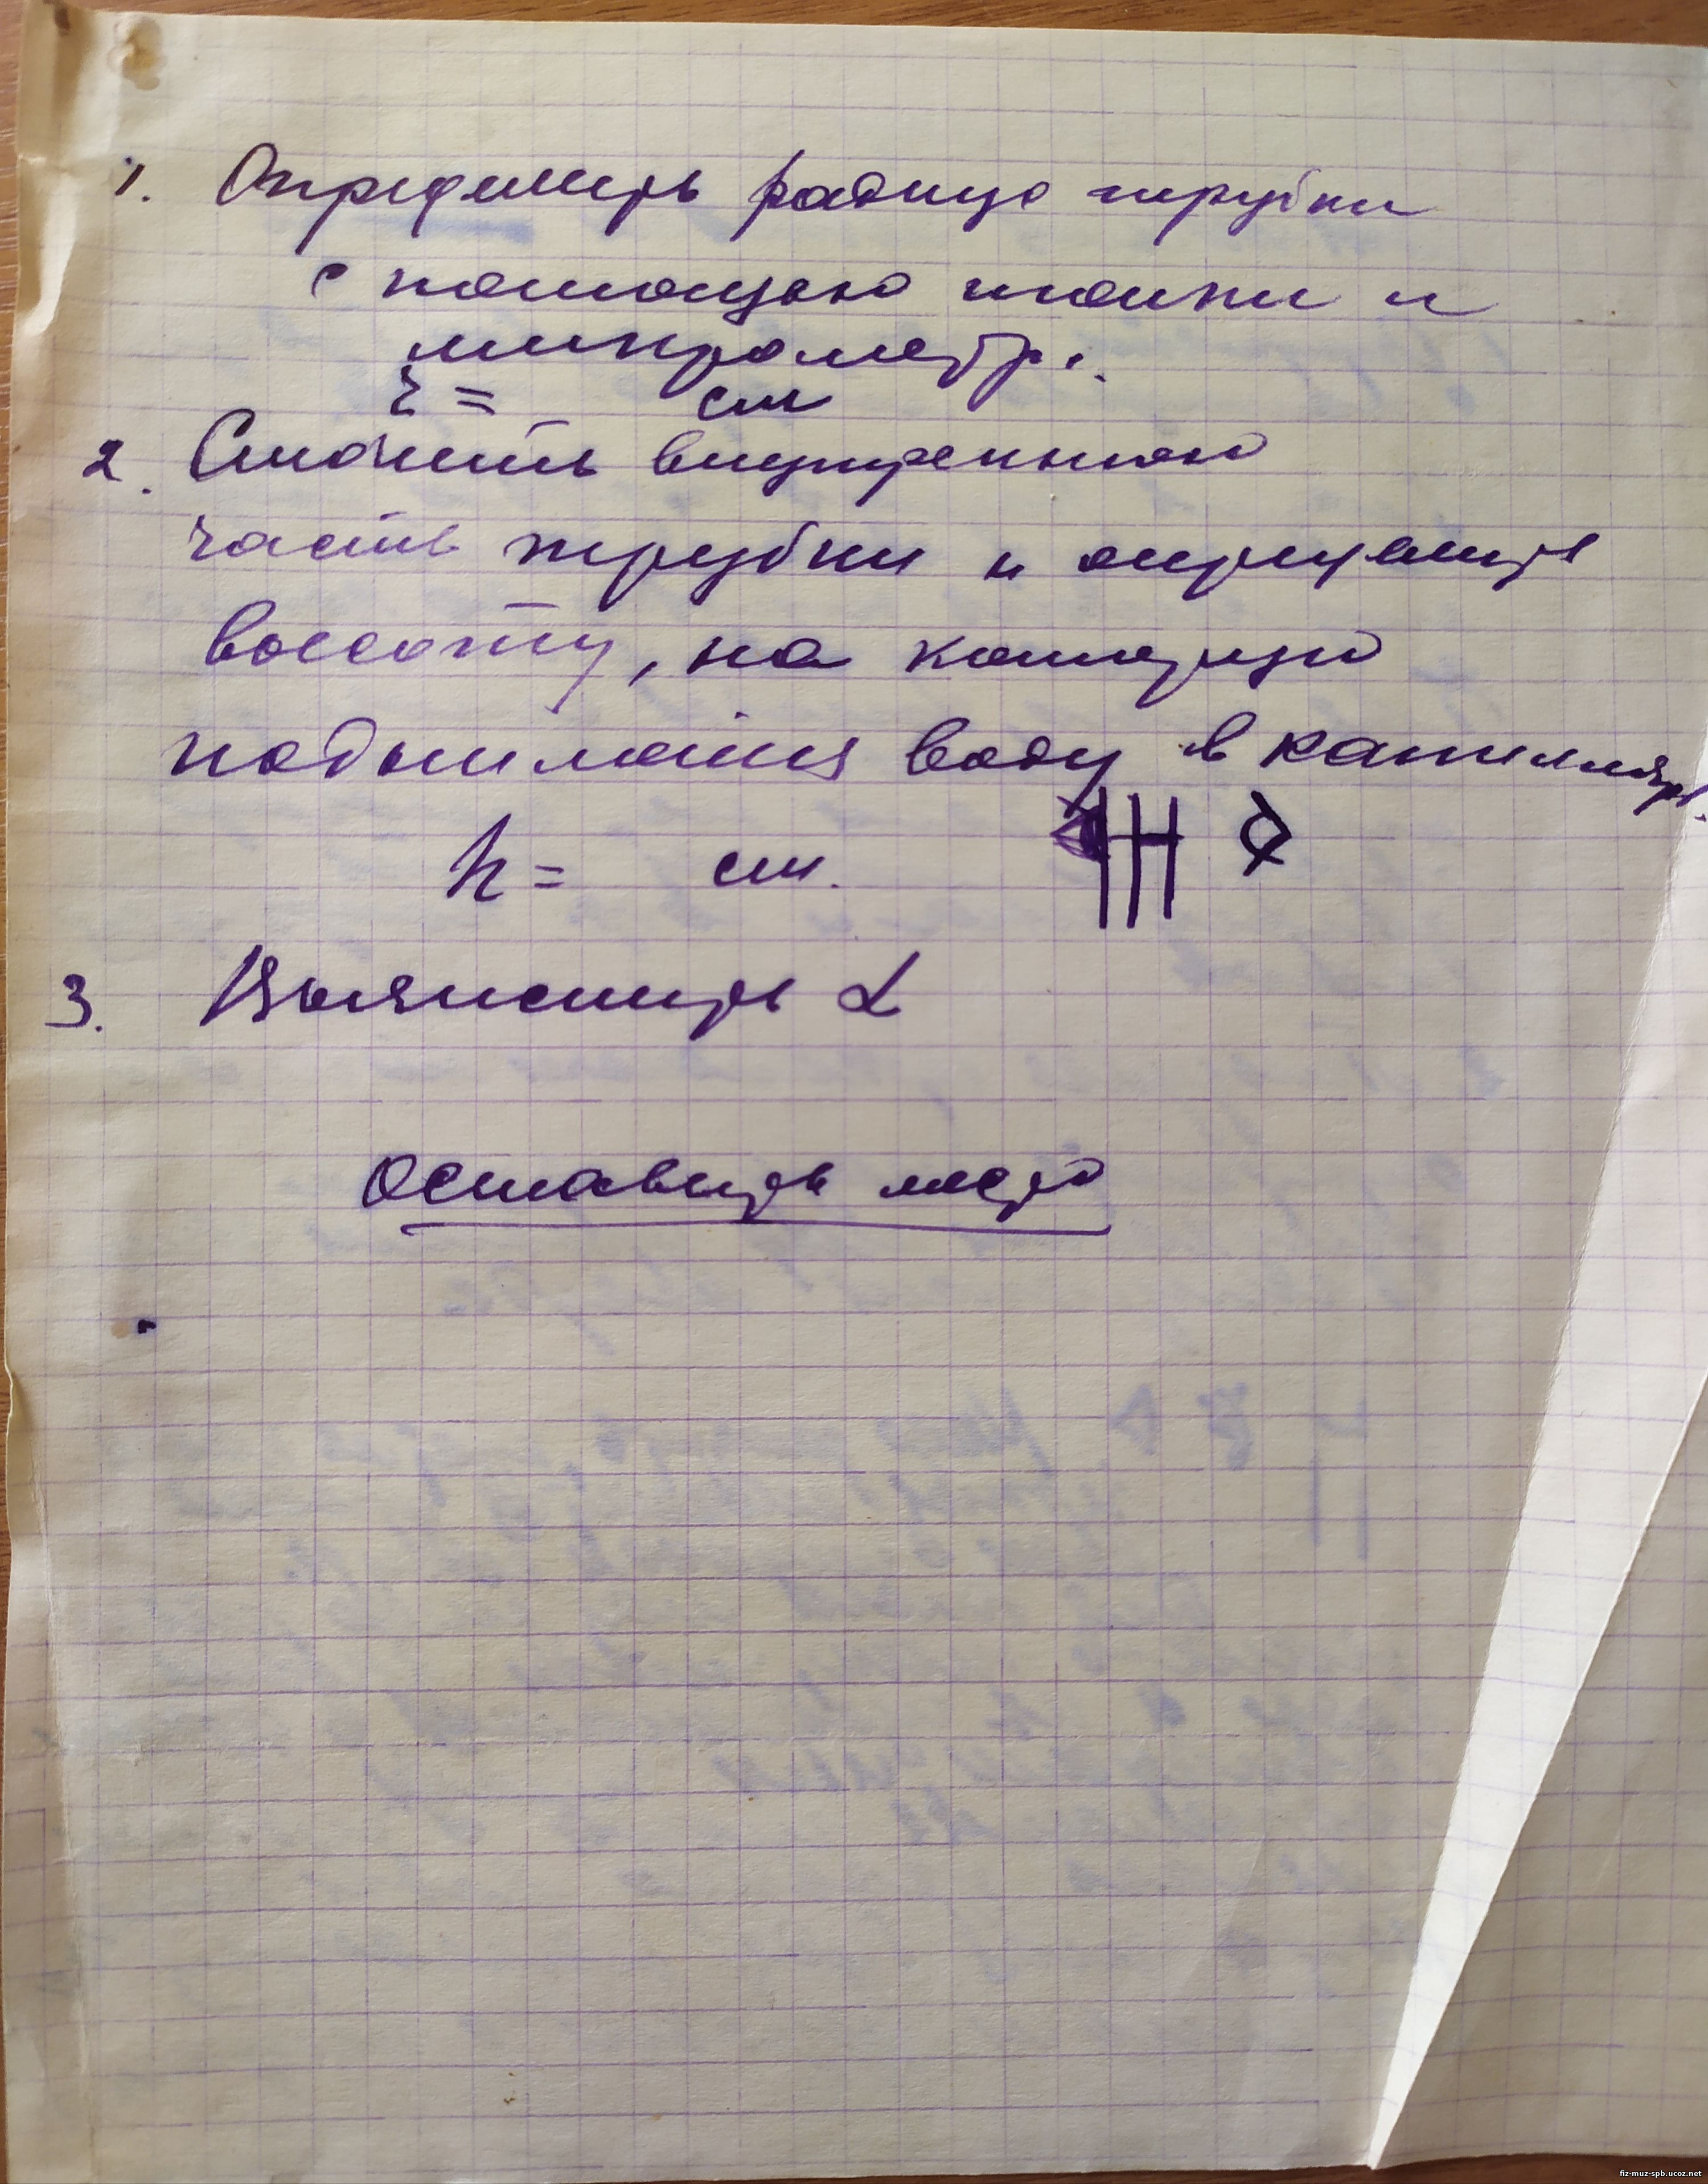 1. Определить радиус трубки
с помощью иголки и
микрометр.
r = см
2. Смочить внутреннюю
часть трубки и определить
высоту, на которую
поднимается вода в капилляре.
h = см.
3. Вычислить α
Оставить место
fiz-muz-spb.ucoz.net